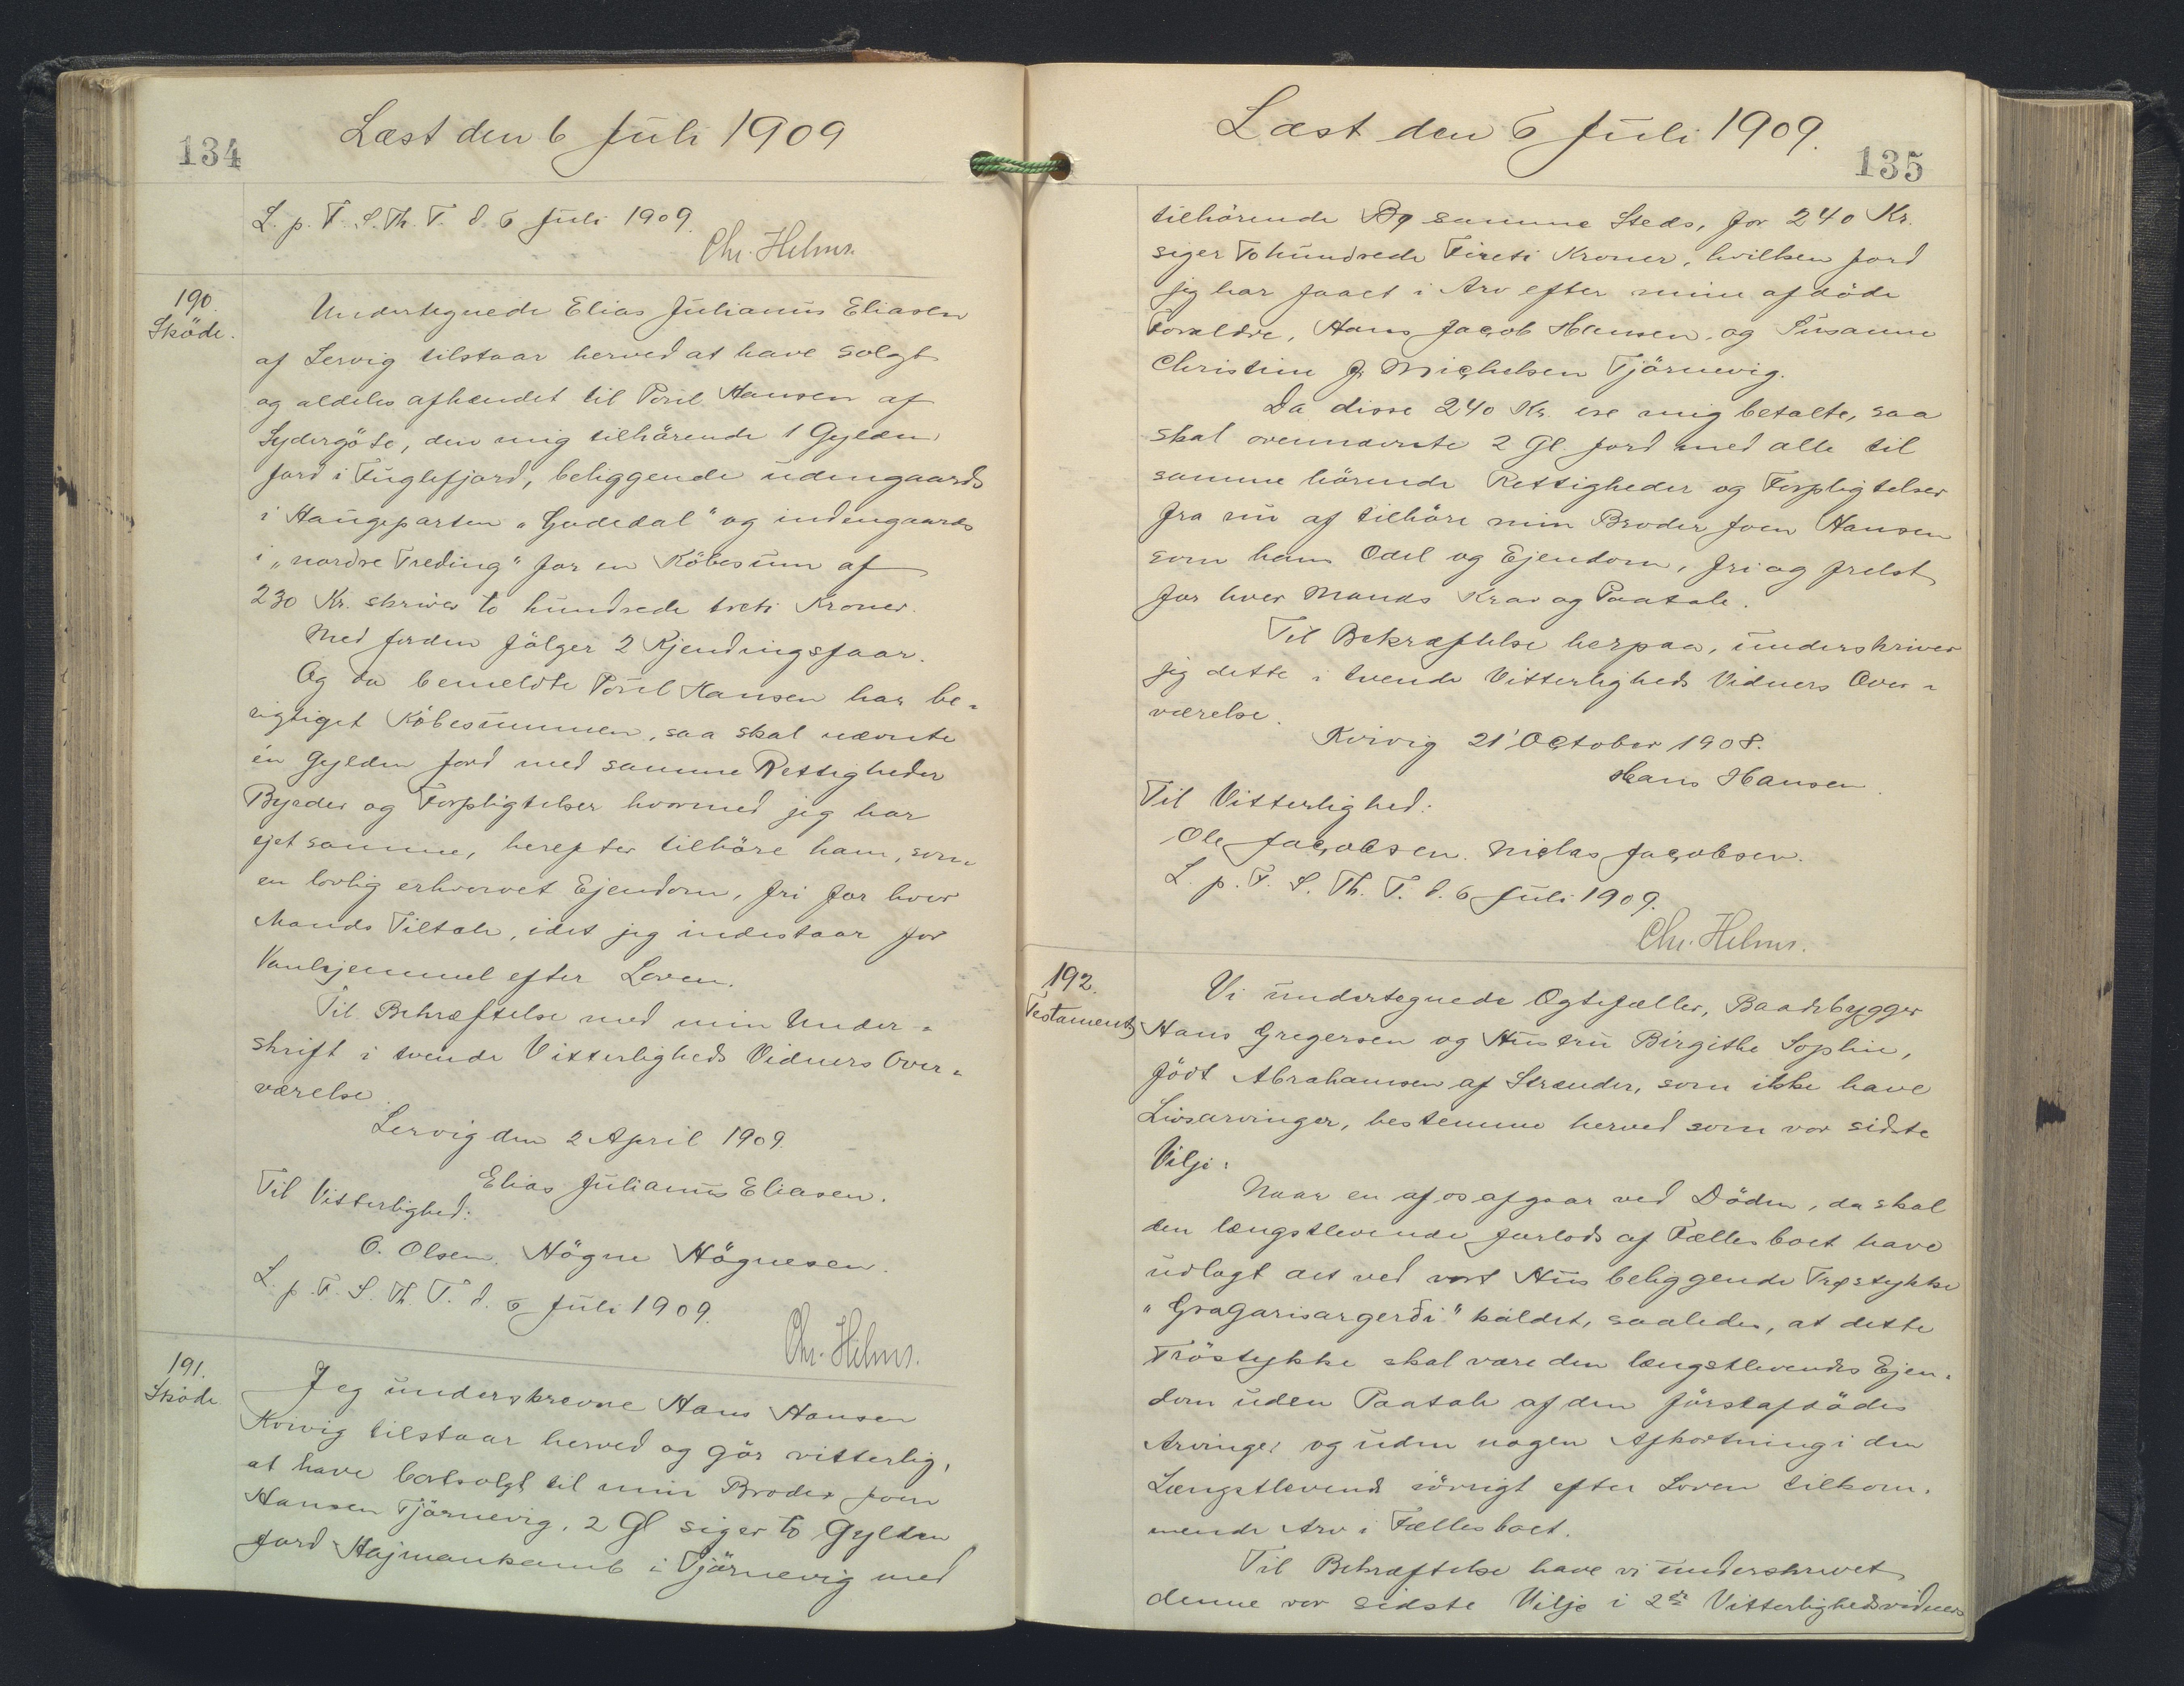 134
Læst den 6 Juli 1909
L. p. F. S. Th. T. d. 6 Juli 1909.
Chr. Helms.
190.
Sköde.
Undertegnede Elias Julianus Eliasen
af Lervig tilstaar herved at have solgt
og aldeles afhændet til Poul Hansen af
Sydergöte, den mig tilhörende 1 Gylden
Jord i Fuglefjord, beliggende udengaards
i Haugeparten „Gudedal" og indengaards
i „nordre Treding" for en Köbesum af
230 Kr. skriver to hundrede treti Kroner.
Med Jorden fölger 2 Kjendingsfaar.
Og da bemeldte Poul Hansen har be-
rigtiget Köbesummen, saa skal nævnte
én Gylden Jord med samme Rettigheder
Byrder og Forpligtelser hvormed jeg har
ejet samme, herefter tilhöre ham, som
en lovlig erhvervet Ejendom, fri for hver
Mands Tiltale, idet jeg indestaar for
Vanhjemmel efter Loven.
Til Bekræftelse med min Under-
skrift i tvende Vitterligheds Vidners Over-
værelse.
Lervig den 2 April 1909.
Elias Julianus Eliasen.
Til Vitterlighed:
O. Olsen. Högne Högnesen.
L. p. F. S. Th. T. d. 6 Juli 1909.
Chr. Helms.
191.
Sköde
Jeg underskrevne Hans Hansen
Kvivig tilstaar herved og gör vitterlig,
at have bortsolgt til min Broder Joen
Hansen Tjörnevig, 2 Gl siger to Gylden
Jord Hajmankamb i Tjörnevig med
Læst den 6 Juli 1909.
135
tilhörende Bø samme Steds, for 240 Kr.
siger To hundrede Fireti Kroner, hvilken Jord
jeg har faaet i Arv efter mine afdöde
Forældre, Hans Jacob Hansen, og Susanne
Christine J. Michelsen Tjörnevig.
Da disse 240 Kr. ere mig betalte, saa
skal ovennævnte 2 Gl. Jord med alle til
samme hörende Rettigheder og Forpligtelser
fra nu af tilhöre min Broder Joen Hansen
som hans Odel og Ejendom, fri og frelst
for hver Mands Krav og Paatale.
Til Bekræftelse herpaa, underskriver
jeg dette i tvende Vitterligheds Vidners Over-
værelse.
Kvivig 21' October 1908.
Hans Hansen.
Til Vitterlighed:
Ole Jacobsen. Niclas Jacobsen.
L. p. F. S. Th. T. d. 6 Juli 1909.
Chr. Helms.
192.
Testament
Vi undertegnede Ægtefæller, Baadebygger
Hans Gregersen og Hustru Birgithe Sophie,
födt Abrahamsen af Strænder, som ikke have
Livsarvinger, bestemme herved som vor sidste
Vilje:
Naar en af os afgaar ved Döden, da skal
den længstlevende forlods af Fællesboet have
udlagt det ved vort Hus beliggende Trøstykke
"Gragarisargerði" kaldet, saaledes, at dette
Tröstykke skal være den længstlevendes Ejen-
dom uden Paatale af den förstafdödes
Arvinger og uden nogen Afkortning i den
Længstlevende iövrigt efter Loven tilkom-
mende Arv i Fællesboet.
Til Bekræftelse have vi underskrevet
denne vor sidste Vilje i 2de Vitterlighedsvidners